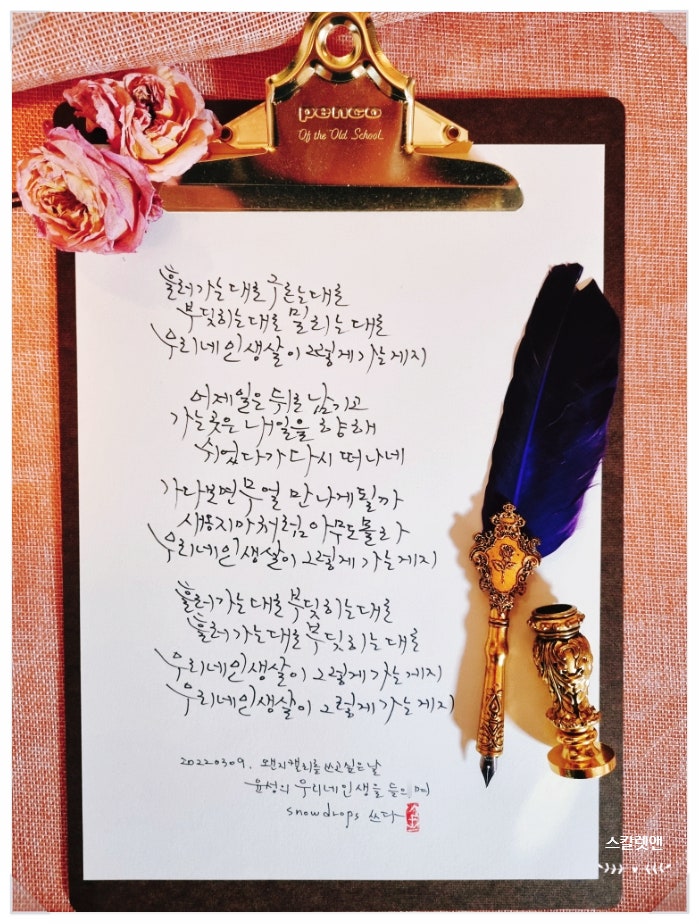 penco
Off the Old School
흘러가는대로 구르는대로
부딪히는대로 밀리는대로
우리네인생살이 그렇게가는게지
어제일은 뒤로 남기고
가는곳은 내일을 향해
쉬었다가 다시 떠나네
가다보면 무얼 만나게될까
새옹지마처럼 아무도몰라
우리네인생살이 그렇게 가는게지
흘러가는대로 부딪히는대로
흘러가는대로 부딪히는대로
우리네인생살이 그렇게가는게지
우리네인생살이 그렇게가는게지
20220309. 왠지캘리를쓰고싶은날
윤성의 우리네인생을 들으며
snowdrops 쓰다
스칼렛앤